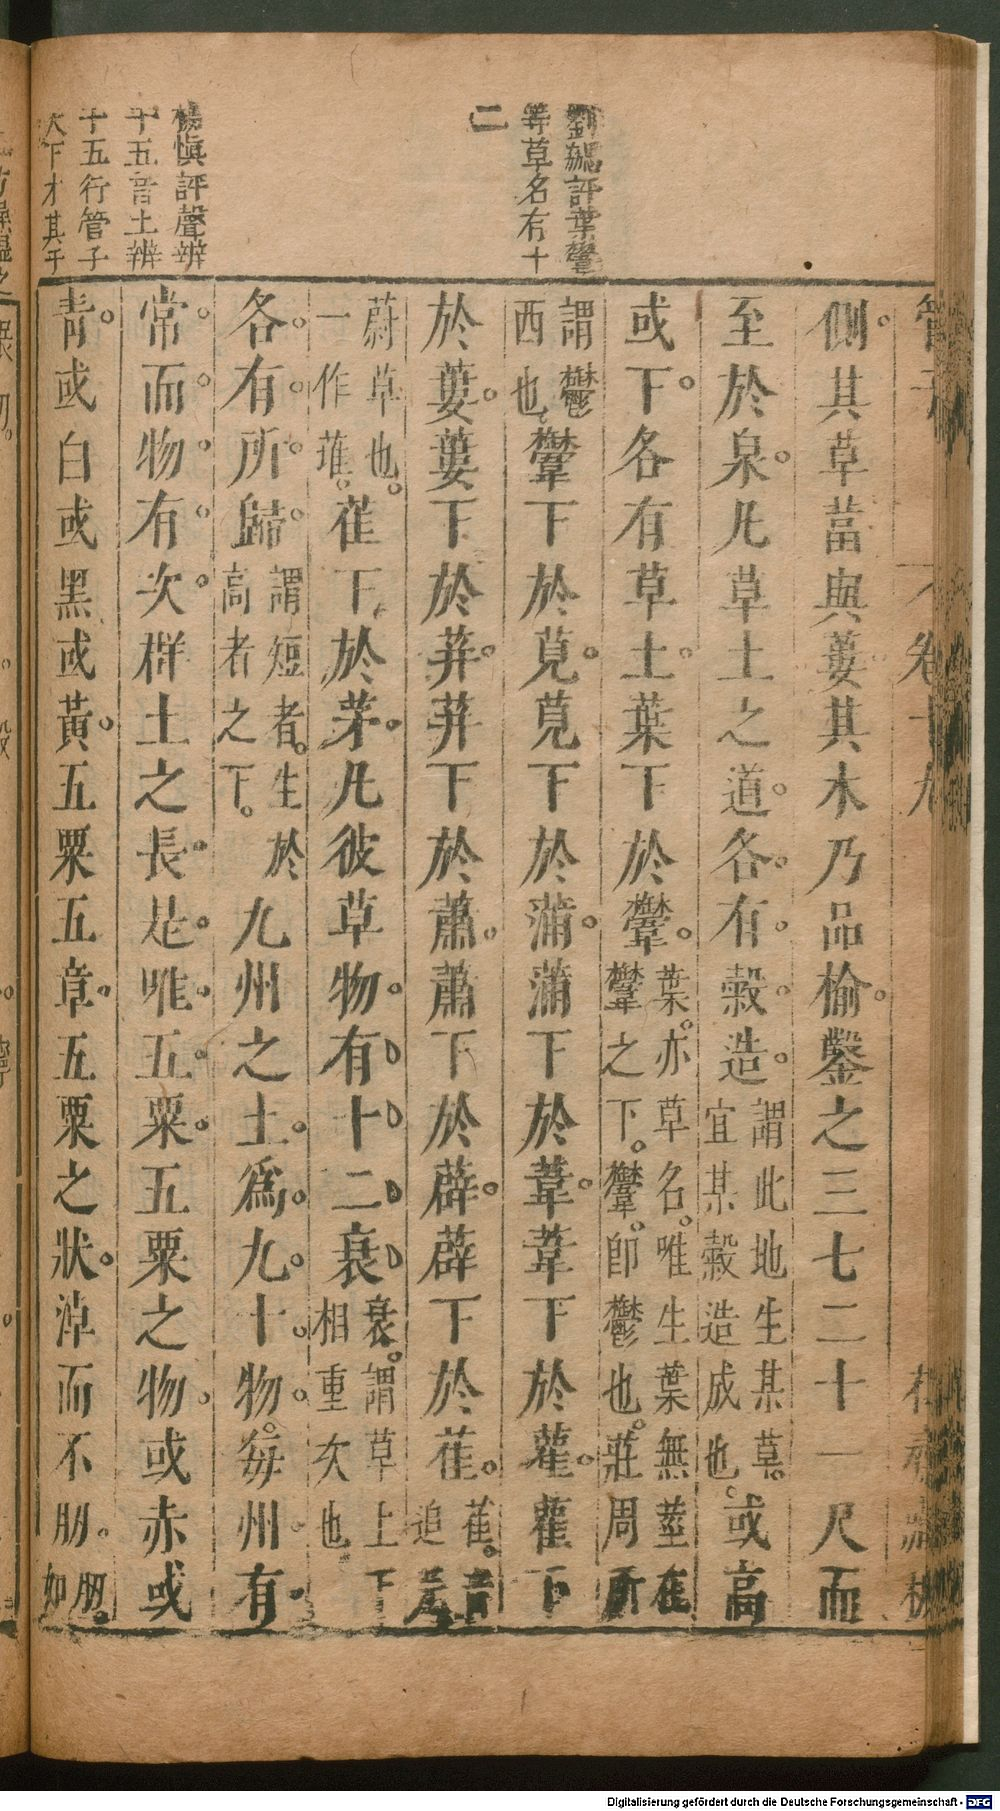 劉績評葉䒹
等草名有十
二
楊慎評聲辨
于五音土辨
于五行管子
天下才其于
側其草葍與蔞其木乃品榆鑿之三七二十一尺而
至於泉凡草土之道各有榖造謂此地生某草宜某榖造成也或高
或下各有草土葉下於䒹葉亦草名唯生葉無莖在䒹之下䒹即鬱也莊周所
謂鬱西也䒹下於莧莧下於蒲蒲下於葦葦下於雚雚下
於蔞蔞下於荓荓下於蕭蕭下於薜薜下於萑萑音追
蔚草也一作蓷萑下於茅凡彼草物有十二衰衰謂草上下相重次也
各有所歸謂短者生於高者之下九州之土為九十物每州有
常而物有次群土之長是唯五粟五粟之物或赤或
青或白或黑或黃五粟五章五粟之狀淖而不肕肕如
卷十九
Digitalisierung gefördert durch die Deutsche Forschungsgemeinschaft - DFG